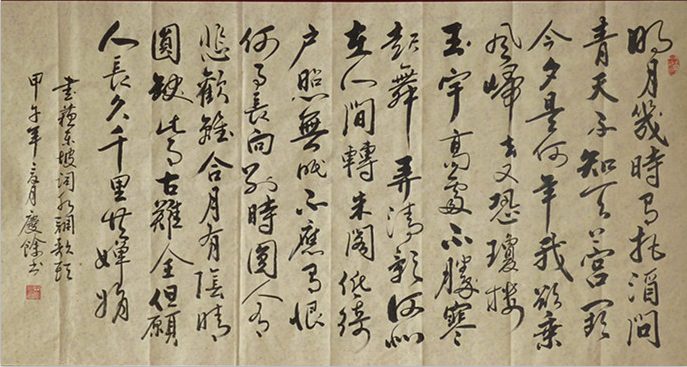 明月幾時有把酒問
青天不知天上宮闕
今夕是何年我欲乘
風歸去又恐瓊樓
玉宇高處不勝寒
起舞弄清影何似
在人間轉朱閣低綺
户照無眠不應有恨
何事長向別時圓人有
悲歡離合月有陰晴
圓缺此事古難全但願
人長久千里共嬋娟
書蘇東坡詞水調歌頭
甲午年月慶餘書